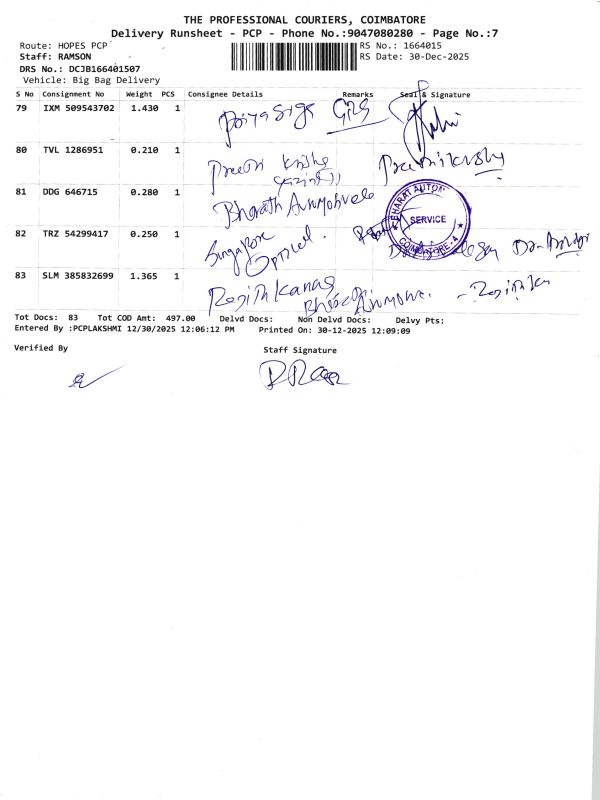 THE PROFESSIONAL COURIERS, COIMBATORE
Delivery Runsheet - PCP - Phone No.:9047080280 - Page No.:7
Route: HOPES PCP RS No.: 1664015
Staff: RAMSON RS Date: 30-Dec-2025
DRS No.: DCJB166401507
Vehicle: Big Bag Delivery
S No Consignment No Weight PCS Consignee Details Remarks Seal & Signature
79 IXM 509543702 1.430 1
80 TVL 1286951 0.210 1 Preethi
81 DDG 646715 0.280 1 Bharath
BHARAT AUTOMO
SERVICE
COIMBATORE-4
82 TRZ 54299417 0.250 1 Singapore
Optical
83 SLM 385832699 1.365 1
Tot Docs: 83 Tot COD Amt: 497.00 Delvd Docs: Non Delvd Docs: Delvy Pts:
Entered By :PCPLAKSHMI 12/30/2025 12:06:12 PM Printed On: 30-12-2025 12:09:09
Verified By Staff Signature